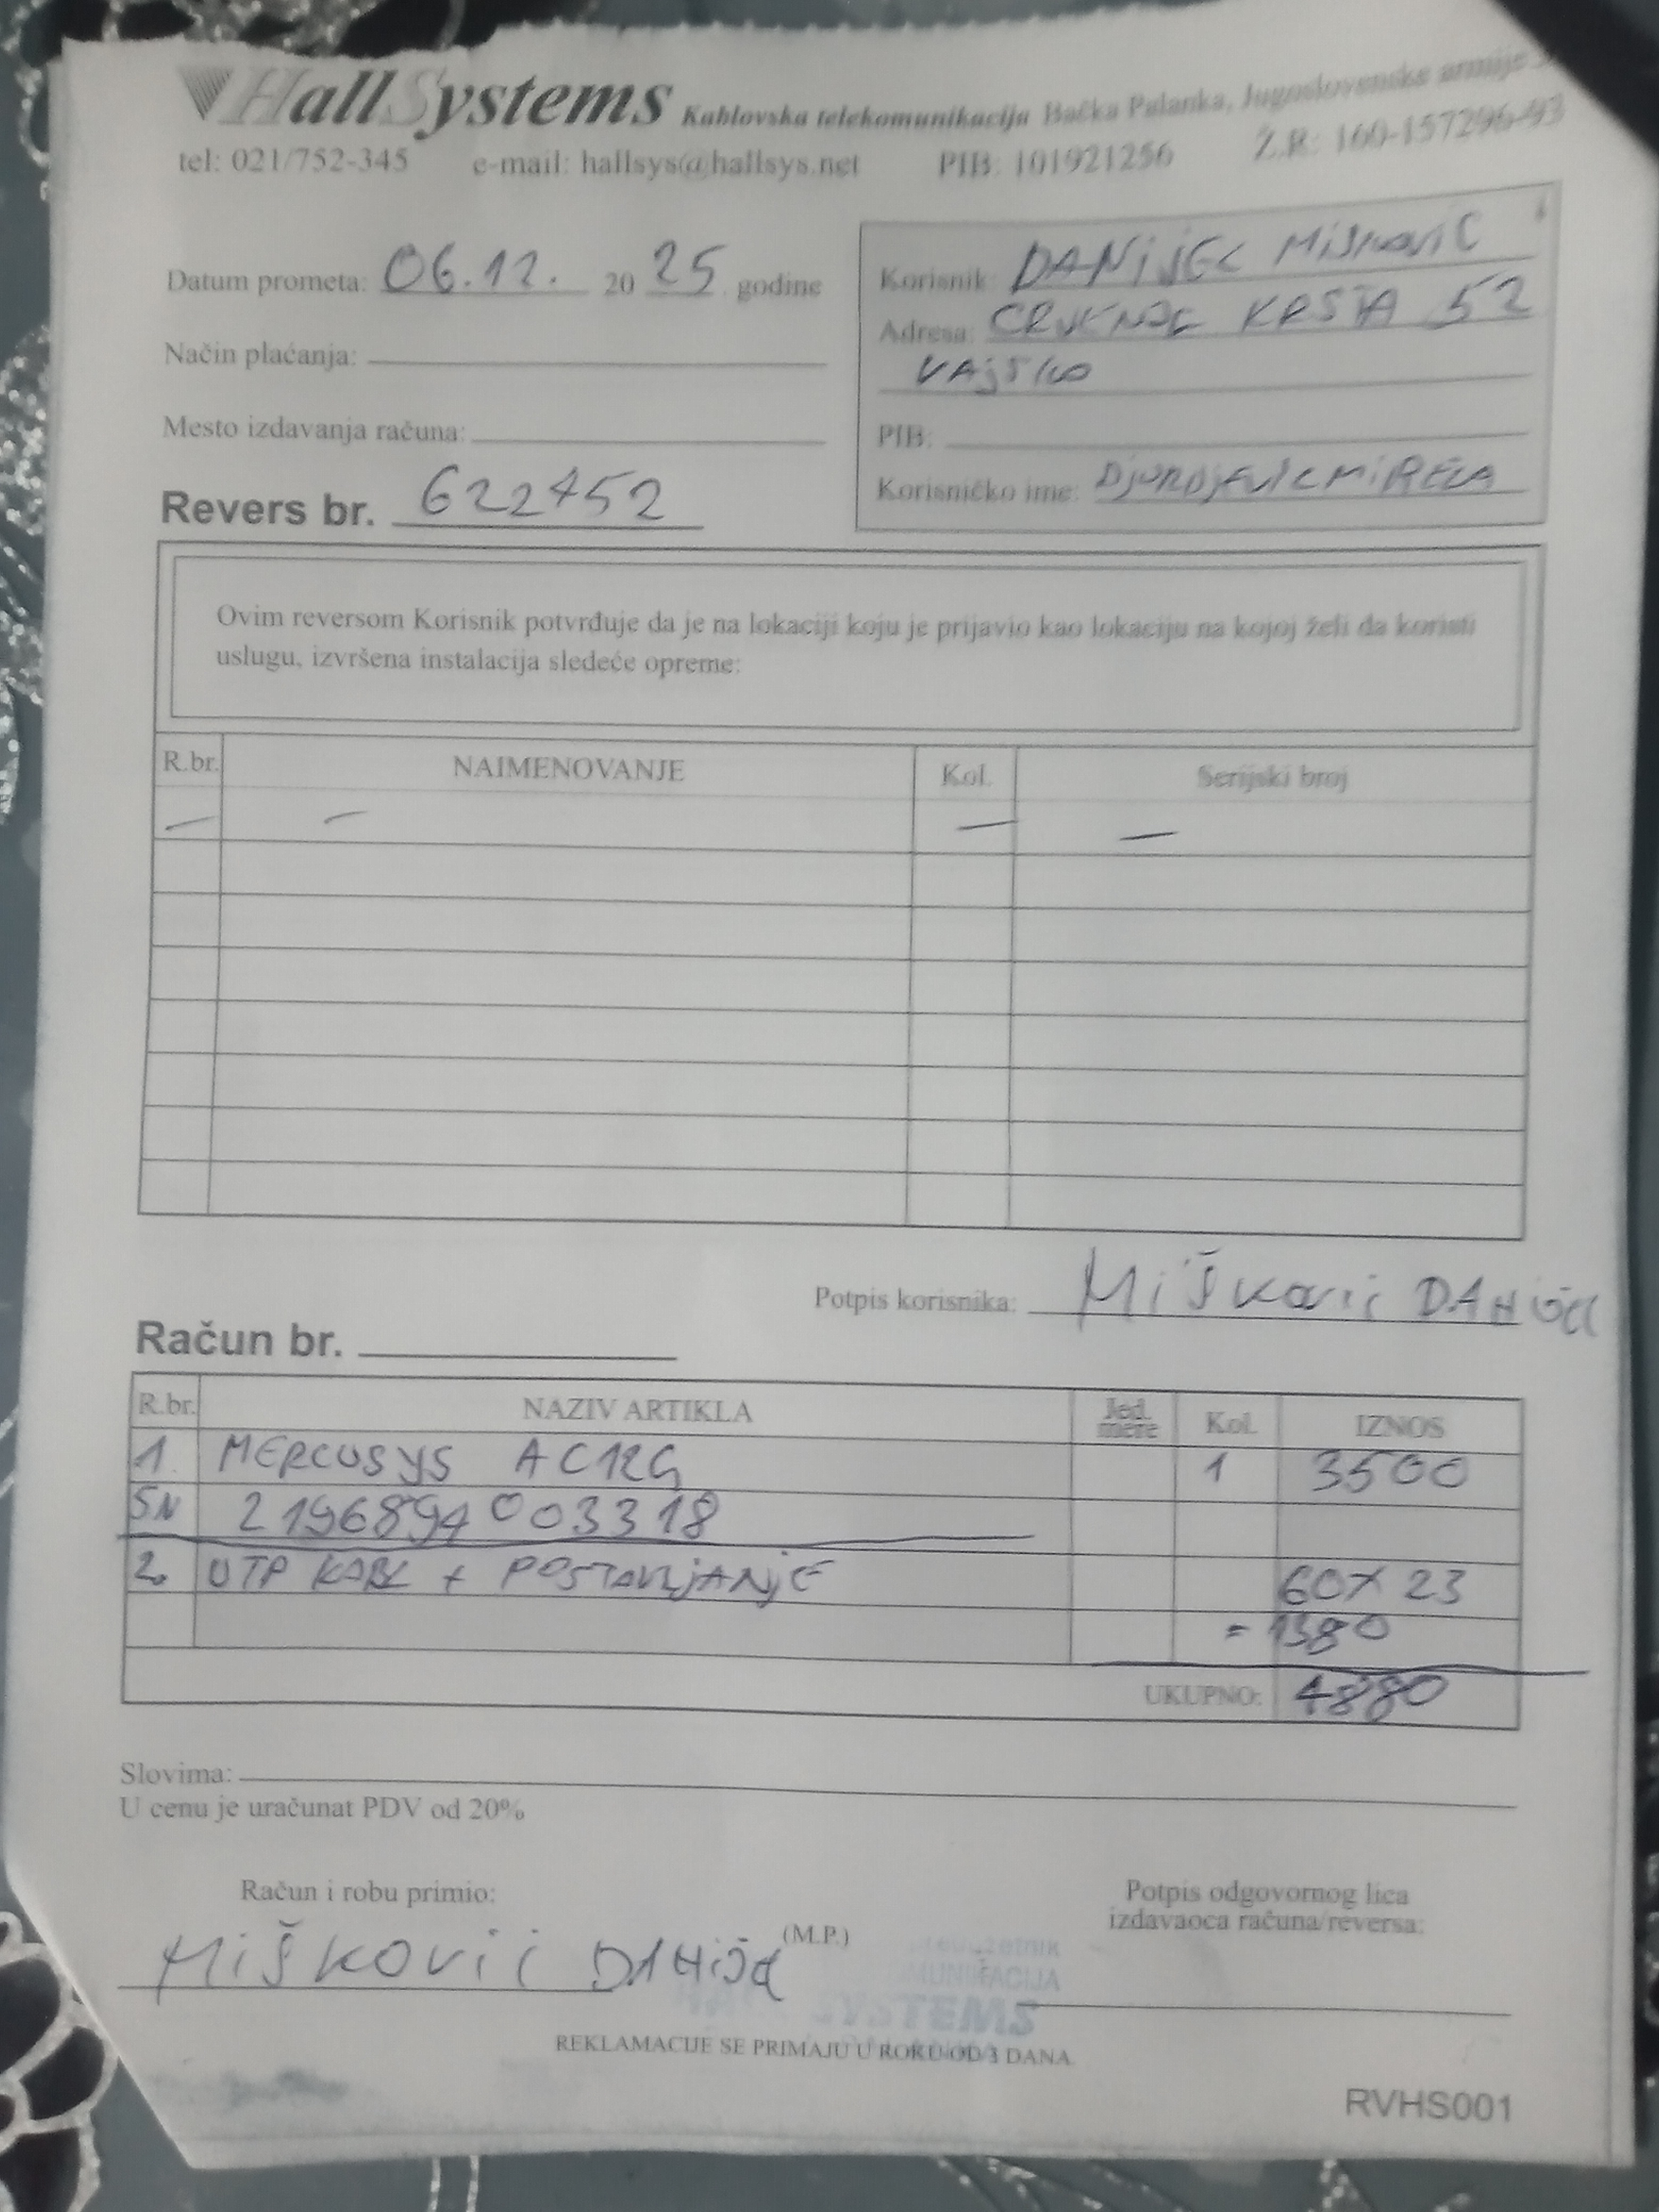 HallSystems Kablovska telekomunikacija Bačka Palanka, Jugoslovenske armije
tel: 021/752-345 e-mail: hallsys@hallsys.net PIB: 101921256 Ž.R: 160-157296-93
Datum prometa: 06.12. 20 25 godine
Način plaćanja:
Mesto izdavanja računa:
Revers br. 622452
Korisnik: DANIJEL MIŠKOVIĆ
Adresa: CRVENOG KRSTA 52
VAJSKA
PIB:
Korisničko ime: DJURDJEVICMIRELA
Ovim reversom Korisnik potvrđuje da je na lokaciji koju je prijavio kao lokaciju na kojoj želi da koristi
uslugu, izvršena instalacija sledeće opreme:
R.br. NAIMENOVANJE Kol. Serijski broj
— — — —
Potpis korisnika: Miškovic DANijel
Račun br.
R.br. NAZIV ARTIKLA Jed. mere Kol. IZNOS
1. MERCUSYS AC12G 1 3500
SN 2196894003318
2. UTP KABL + POSTAVLJANJE 60x23
= 1380
UKUPNO: 4880
Slovima:
U cenu je uračunat PDV od 20%
Račun i robu primio:
Miškovic DANijel
(M.P.)
Potpis odgovornog lica
izdavaoca računa/reversa:
SYSTEMS
REKLAMACIJE SE PRIMAJU U ROKU OD 3 DANA
RVHS001